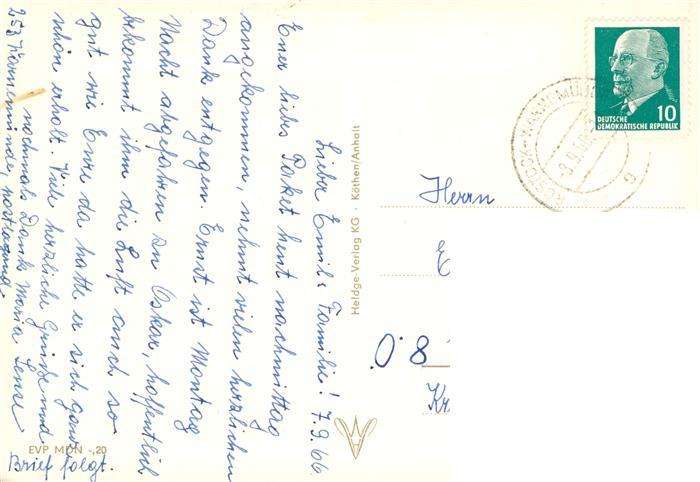 Liebe Emil's Familie! 7.9.66
Euer liebs Paket heut nachmittag
angekommen, nehmt vielen herzlichen
Dank entgegen. Ernst ist Montag
Nacht abgefahren zu Oskar, hoffentlich
bekommt ihm die Luft auch so
gut wie Eure da hatte er sich ganz
schön erholt. Viele herzliche Grüße und
nochmals Dank Maria
253 Warnemünde, postlagernd.
Brief folgt.
EVP MDN -,20
Heldge-Verlag KG · Köthen/Anhalt
10
DEUTSCHE
DEMOKRATISCHE REPUBLIK
ROSTOCK-WARNEMÜNDE
Herrn
E
08
Kr.